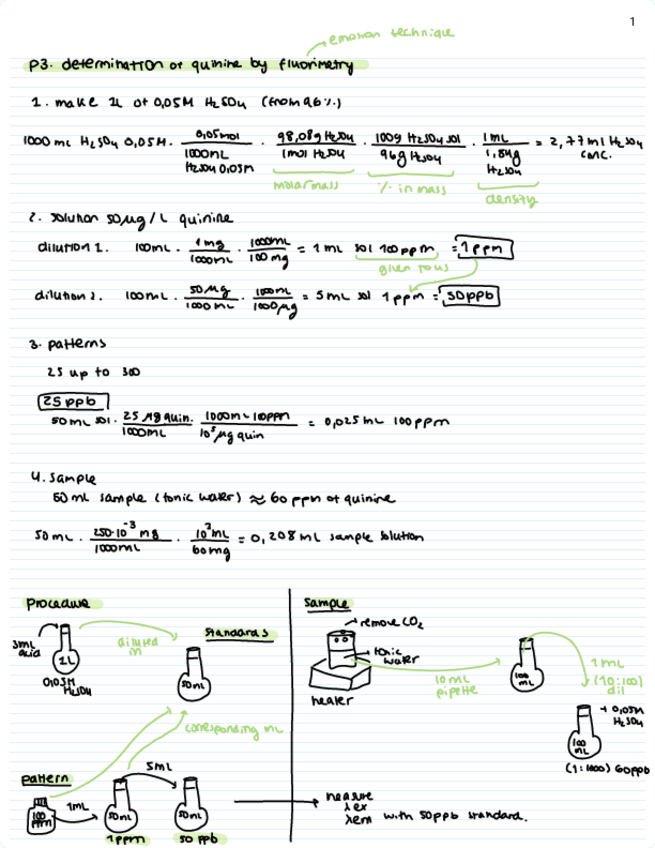 1
emotion technique
P3. determination of quinine by fluorimetry
1. make 1L of 0,05M H₂SO₄ (from 96%)
1000 mL H₂SO₄ 0,05M · 0,05mol / 1000mL H₂SO₄ 0,05M · 98,08g H₂SO₄ / 1mol H₂SO₄ · 100g H₂SO₄ sol / 96g H₂SO₄ · 1mL / 1,84g H₂SO₄ = 2,77ml H₂SO₄ conc.
molar mass % in mass density
2. solution 50µg/L quinine
dilution 1. 100mL · 1mg / 1000mL · 1000mL / 100mg = 1mL sol 100ppm = 1ppm
given to us
dilution 2. 100mL · 50µg / 1000mL · 1000mL / 1000µg = 5mL sol 1ppm = 50ppb
3. patterns
25 up to 300
25ppb
50mL sol · 25µg quin. / 1000mL · 1000mL 100ppm / 10⁵µg quin = 0,025mL 100ppm
4. sample
50mL sample (tonic water) ≈ 60ppm of quinine
50mL · 250·10⁻³mg / 1000mL · 10³mL / 60mg = 0,208mL sample solution
Procedure
3mL acid
1L
0,05M H₂SO₄
diluted in
standards
50mL
corresponding mL
pattern
100 ppm
1mL
50mL
1ppm
5mL
50mL
50 ppb
measure
λex
λem with 50ppb standard.
sample
remove CO₂
tonic water
heater
10mL pipette
100 mL
1mL
(10:100)
dil
+ 0,05M H₂SO₄
100 mL
(1:1000) 60ppb